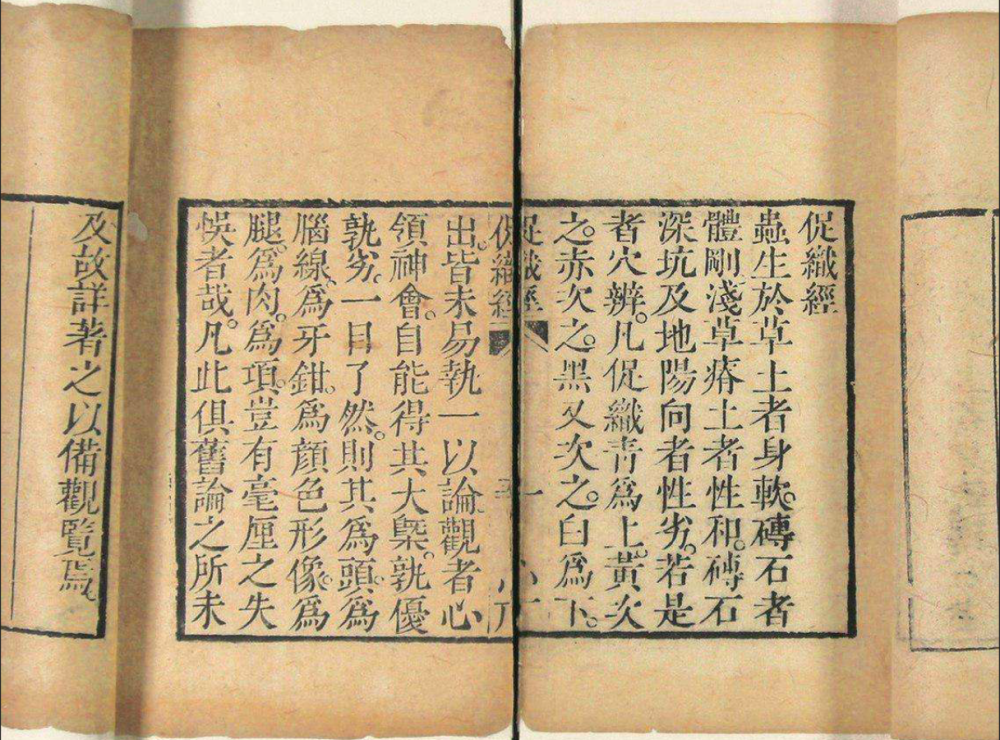 促織經
蟲生於草土者身軟。磚石者
體剛。淺草瘠土者性和。磚石
深坑及地陽向者性劣。若是
者穴辨。凡促織青爲上。黃次
之。赤次之。黑又次之。白爲下。
促織經
出。皆未易執一以論觀者心
領神會。自能得其大槩。孰優
孰劣。一目了然。則其爲頭。爲
腦線。爲牙鉗。爲顔色形像。爲
腿。爲肉。爲項。豈有毫厘之失
悞者哉。凡此俱舊論之所未
及故詳著之以備觀覽焉。